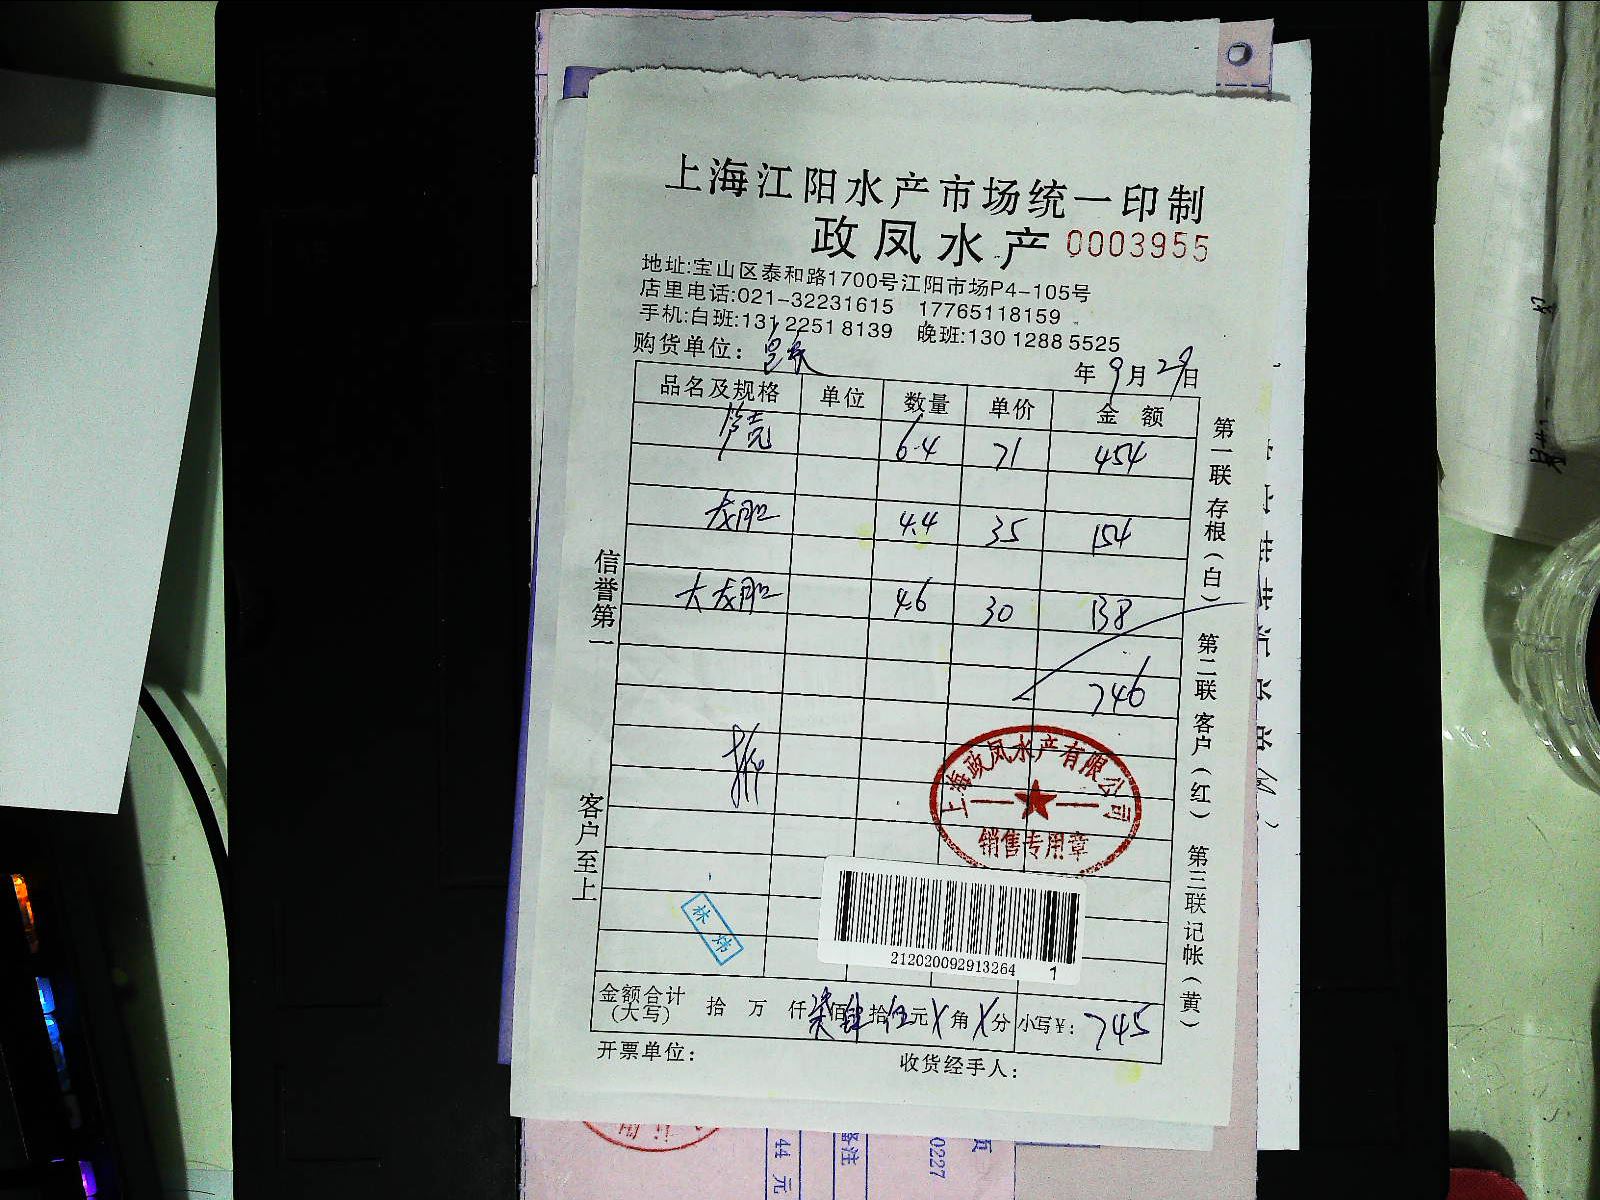 上海江阳水产市场统一印制
政凤水产 0003955
地址:宝山区泰和路1700号江阳市场P4-105号
店里电话:021-32231615 17765118159
手机:白班:131 2251 8139 晚班:130 1288 5525
购货单位:
年9月29日
品名及规格 单位 数量 单价 金额
6.4 71 454
龙胆 4.4 35 154
大龙胆 4.6 30 138
746
信誉第一
客户至上
第一联存根(白) 第二联客户(红) 第三联记帐(黄)
上海政凤水产有限公司
销售专用章
林炜
212020092913264 1
金额合计(大写) 拾 万 仟 柒佰肆拾伍元X角X分 小写¥: 745
开票单位: 收货经手人:
44 元
备注
0227
页